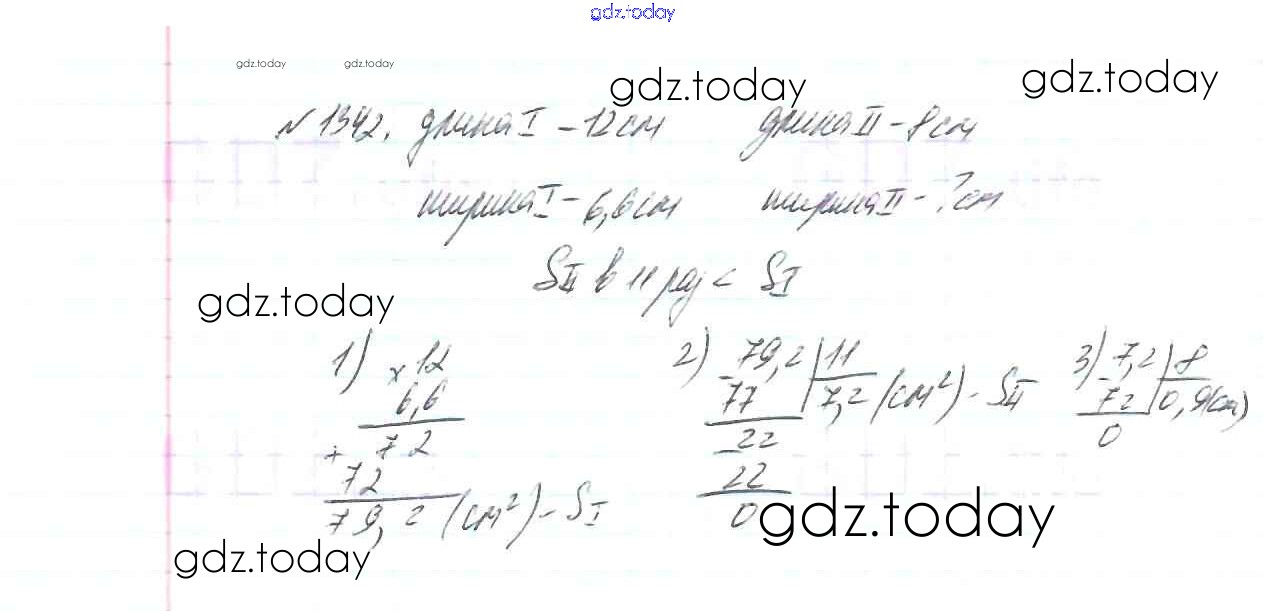 gdz.today
gdz.today gdz.today gdz.today gdz.today
№1342. длина I – 12 см длина II – 8 см
ширина I – 6,6 см ширина II – ? см
SII в 11 раз < SI
gdz.today
1) × 12 2) 79,2 | 11 3) 7,2 | 8
6,6 77 7,2 (см²) – SII 72 0,9 (см)
+ 72 22 0
72 22
79,2 (см²) – SI 0 gdz.today
gdz.today